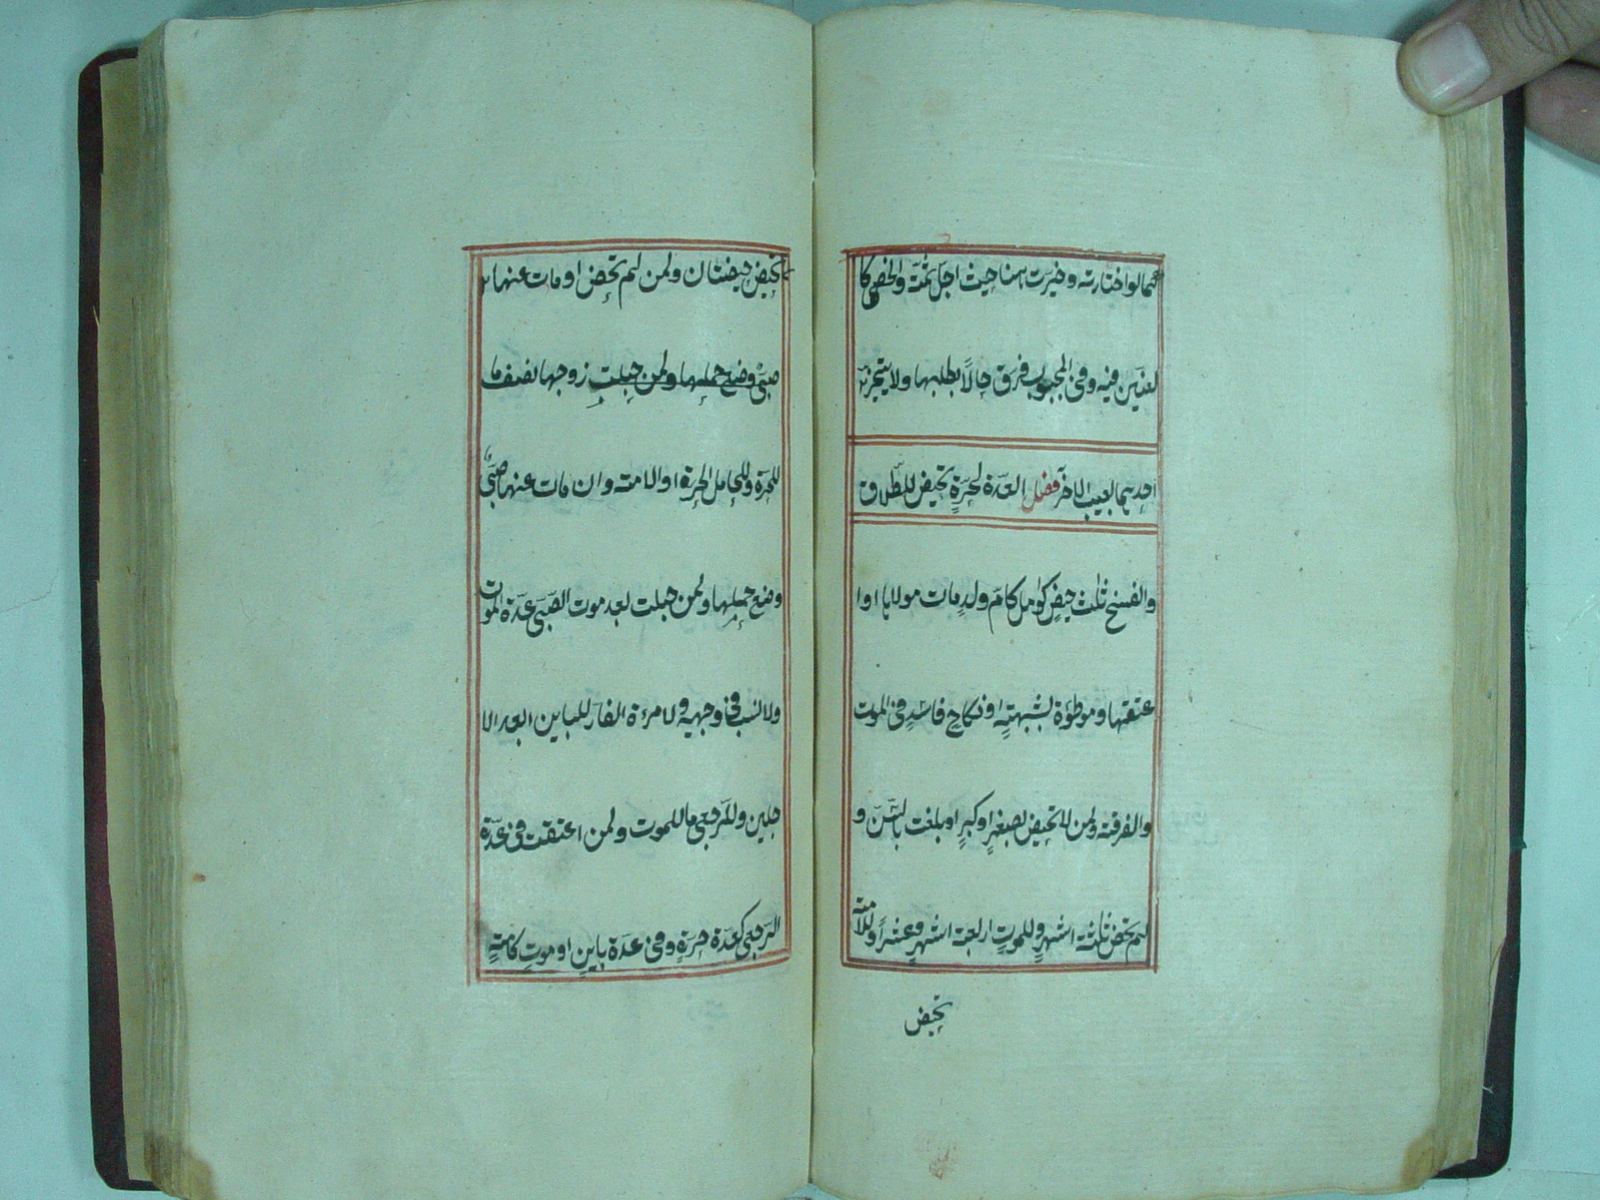 كما لو اختارته وخيرت هنا حيث اجل ثمة والخصى كا
لعنين فيه وفى المجبوب فرق حالاً بطلبها ولا يتخير
احدهما بعيب الاخر فصل العدة لحرةٍ تحيض للطلاق
والفسخ ثلث حيضٍ كوامل كام ولدٍ مات مولاها او ا
عتقها وموطؤة بشبهتهٍ او نكاحٍ فاسدٍ فى الموت
والفرقة ولمن لا تحيض لصغرٍ او كبرٍ او بلغت بالسن و
لم تحض ثلثة اشهرٍ وللموت اربعة اشهرٍ وعشراً وللامة
تحيض
تحيض حيضتان ولمن لم تحض او مات عنها
وضع حملها ولمن حبلت زوجها نصف ما
للحرة وللحامل الحرة او الامة وان مات عنها صبىٌ
وضع حملها ولمن حبلت بعد موت الصبى عدة الموت
ولا نسب فى وجهيه ولامرءة الفار للباين ابعد الا
جلين وللرجعى ما للموت ولمن اعتقت فى عدة
الرجعى كعدة حرةٍ وفى عدة باينٍ او موتٍ كامةٍ